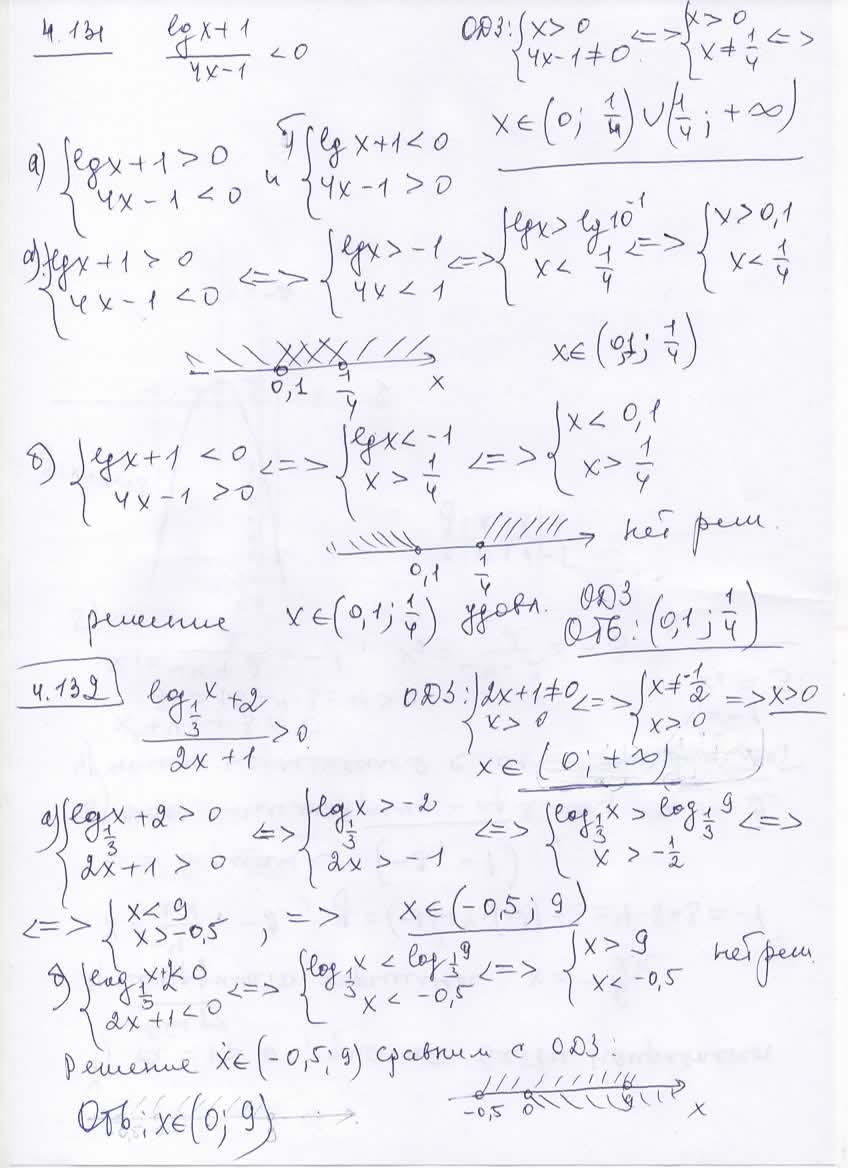 4.131 (lg x+1)/(4x-1) < 0 ОДЗ: { x>0 ; 4x-1≠0 <=> { x>0 ; x≠1/4 <=>
x∈(0; 1/4)∪(1/4; +∞)
а) { lg x+1>0 ; 4x-1<0 и б) { lg x+1<0 ; 4x-1>0
а) { lg x+1>0 ; 4x-1<0 <=> { lg x>-1 ; 4x<1 <=> { lg x>lg 10^-1 ; x<1/4 <=> { x>0,1 ; x<1/4
0,1 1/4 x x∈(0,1; 1/4)
б) { lg x+1<0 ; 4x-1>0 <=> { lg x<-1 ; x>1/4 <=> { x<0,1 ; x>1/4
0,1 1/4 нет реш.
решение x∈(0,1; 1/4) удовл. ОДЗ
Отв: (0,1; 1/4)
4.132 (log_{1/3} x+2)/(2x+1) >0 ОДЗ: { 2x+1≠0 ; x>0 <=> { x≠-1/2 ; x>0 => x>0
x∈(0; +∞)
а) { log_{1/3} x+2>0 ; 2x+1>0 <=> { log_{1/3} x>-2 ; 2x>-1 <=> { log_{1/3} x>log_{1/3} 9 ; x>-1/2 <=>
<=> { x<9 ; x>-0,5 , => x∈(-0,5; 9)
б) { log_{1/3} x+<0 ; 2x+1<0 <=> { log_{1/3} x<log_{1/3} 9 ; x<-0,5 <=> { x>9 ; x<-0,5 нет реш.
Решение x∈(-0,5, 9) сравним с ОДЗ:
-0,5 0 9 x
Отв: x∈(0; 9)